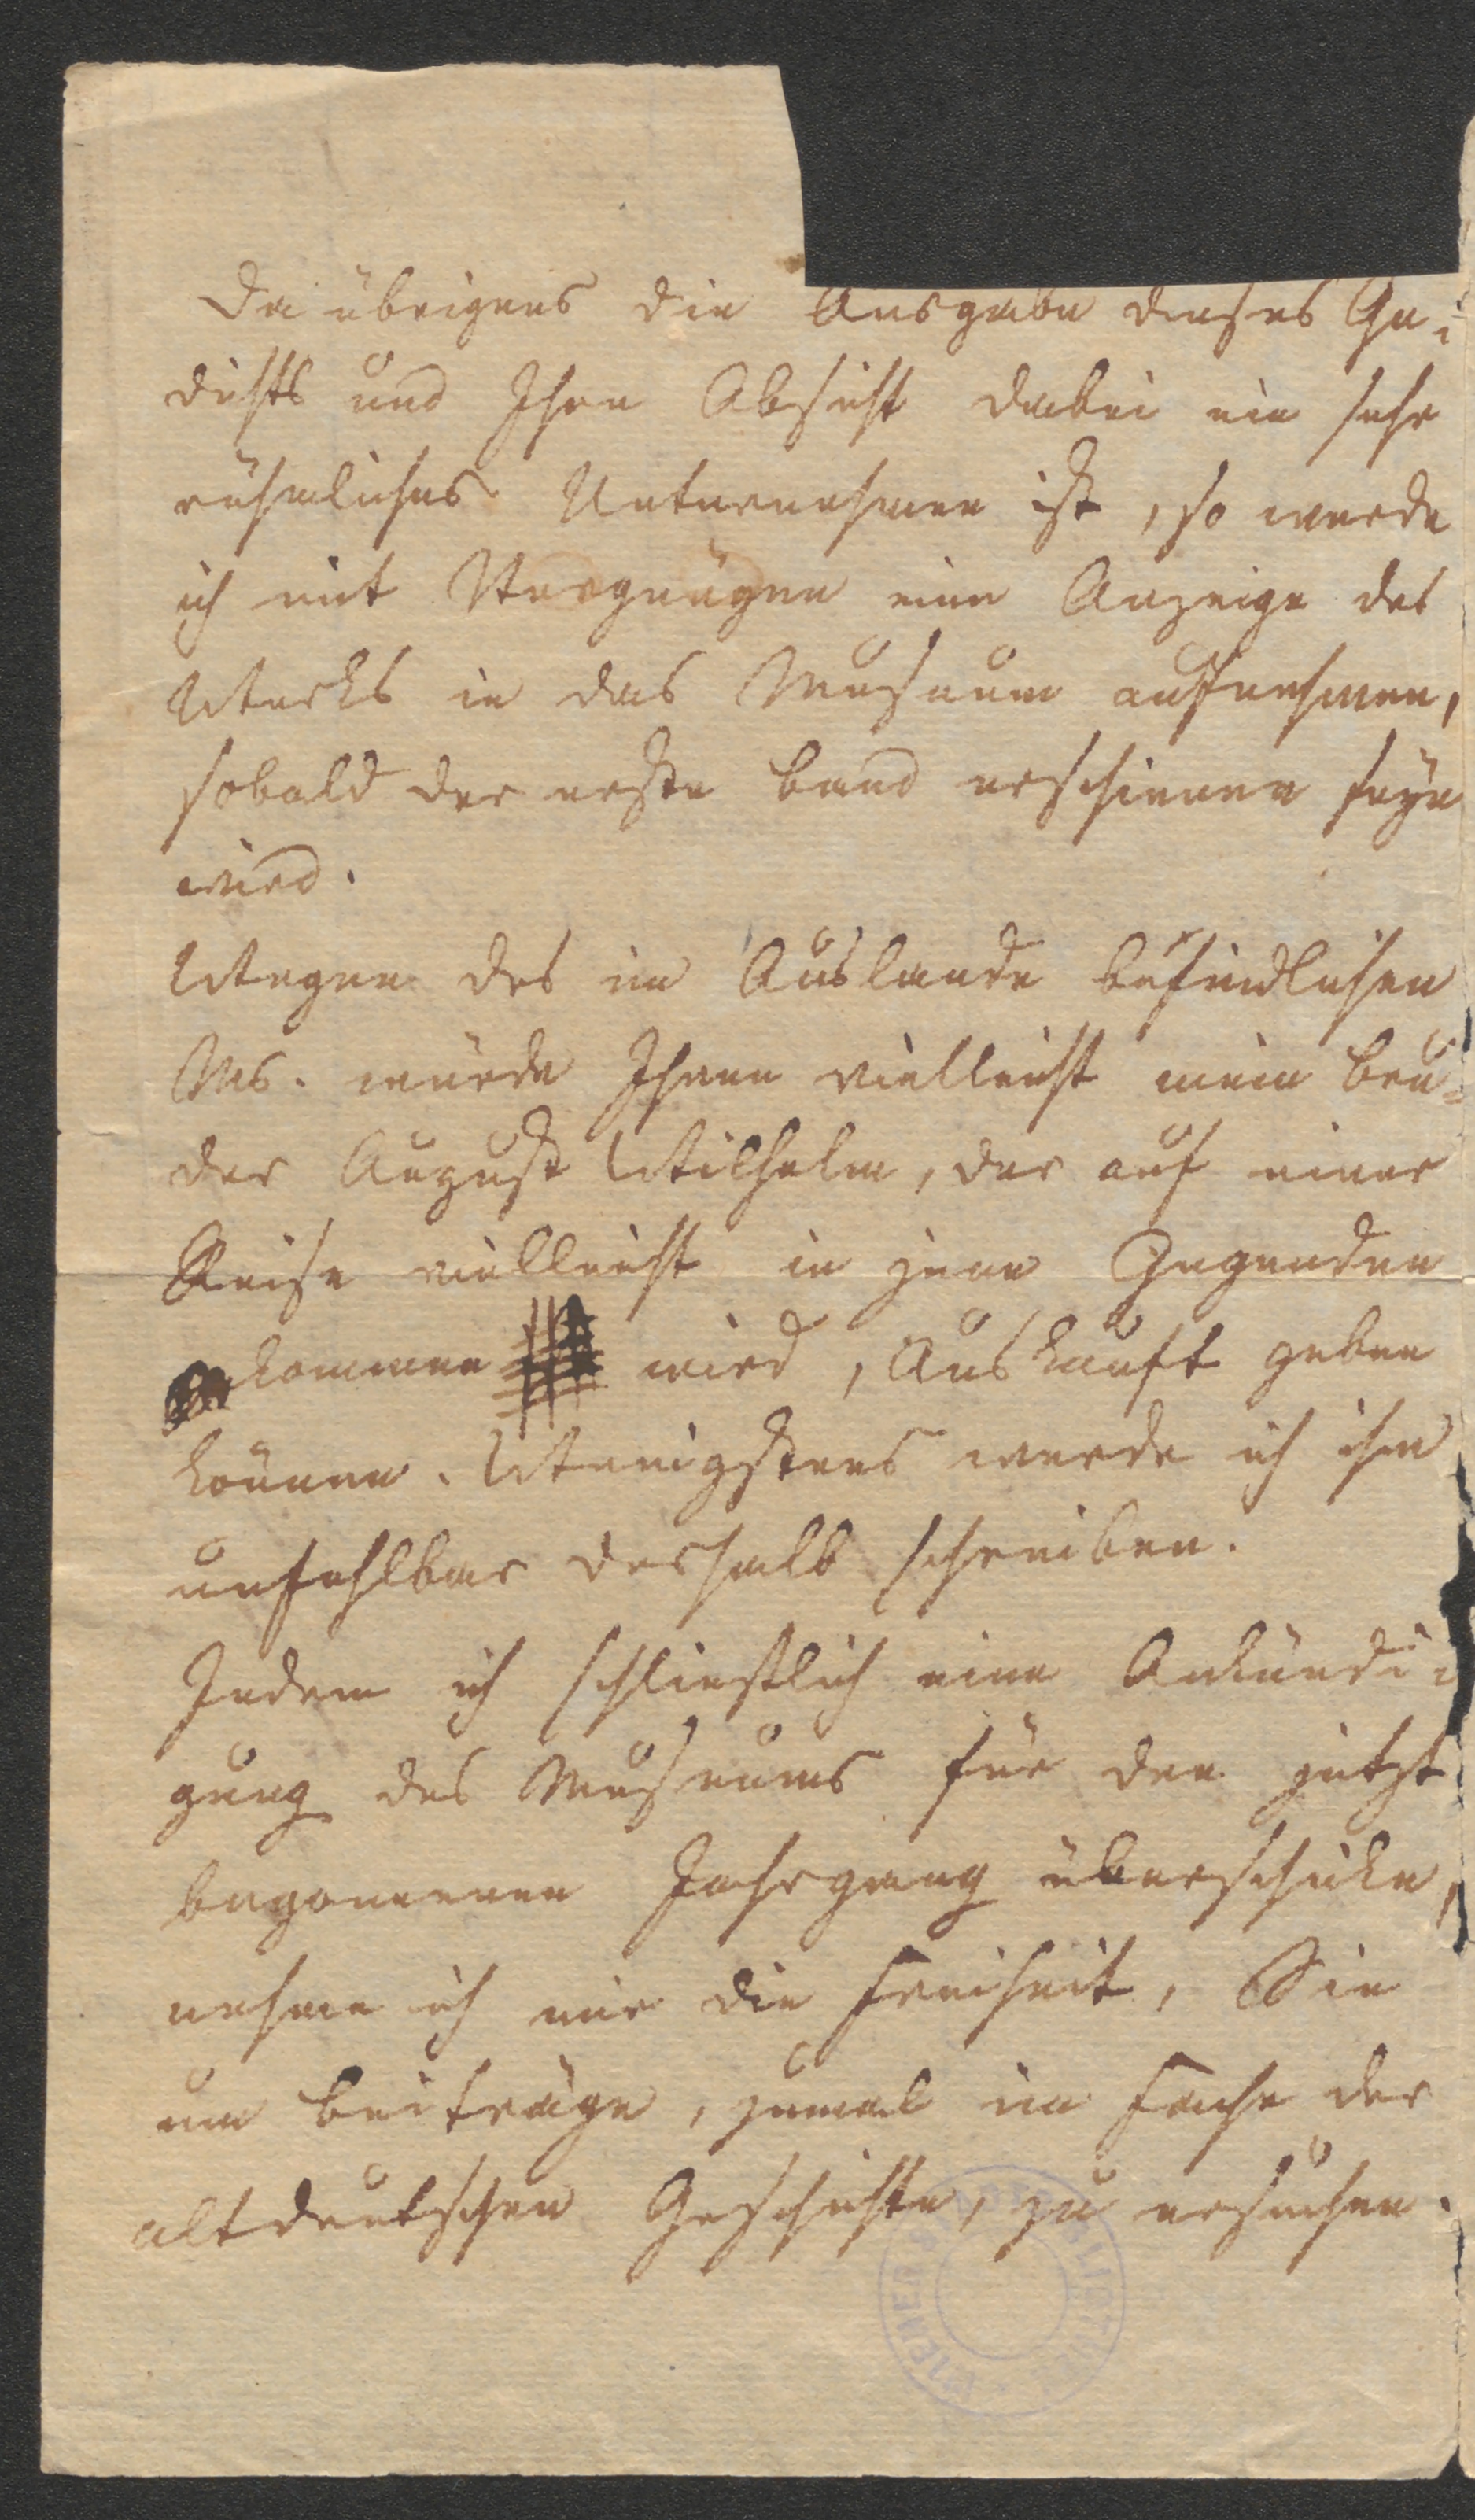 Da übrigens die Ausgabe dieses Ge-
dichts und Ihre Absicht dabei ein sehr
rühmliches Unternehmen ist, so werde
ich mit Vergnügen eine Anzeige des
Werks in das Museum aufnehmen,
sobald der erste Band erschienen seyn
wird.
Wegen des im Auslande befindlichen
Ms. würde Ihnen vielleicht mein Bru-
der August Wilhelm, der auf einer
Reise vielleicht in jene Gegenden
kommen wird, Auskunft geben
können. Wenigstens werde ich ihm
unfehlbar deshalb schreiben.
Indem ich schließlich eine Ankündi-
gung des Museums für den jetzt
begonnenen Jahrgang überschicke,
nehme ich mir die Freiheit, Sie
um Beiträge, zumal im Fache der
altdeutschen Geschichte, zu ersuchen.
WIENER STADTBIBLIOTHEK